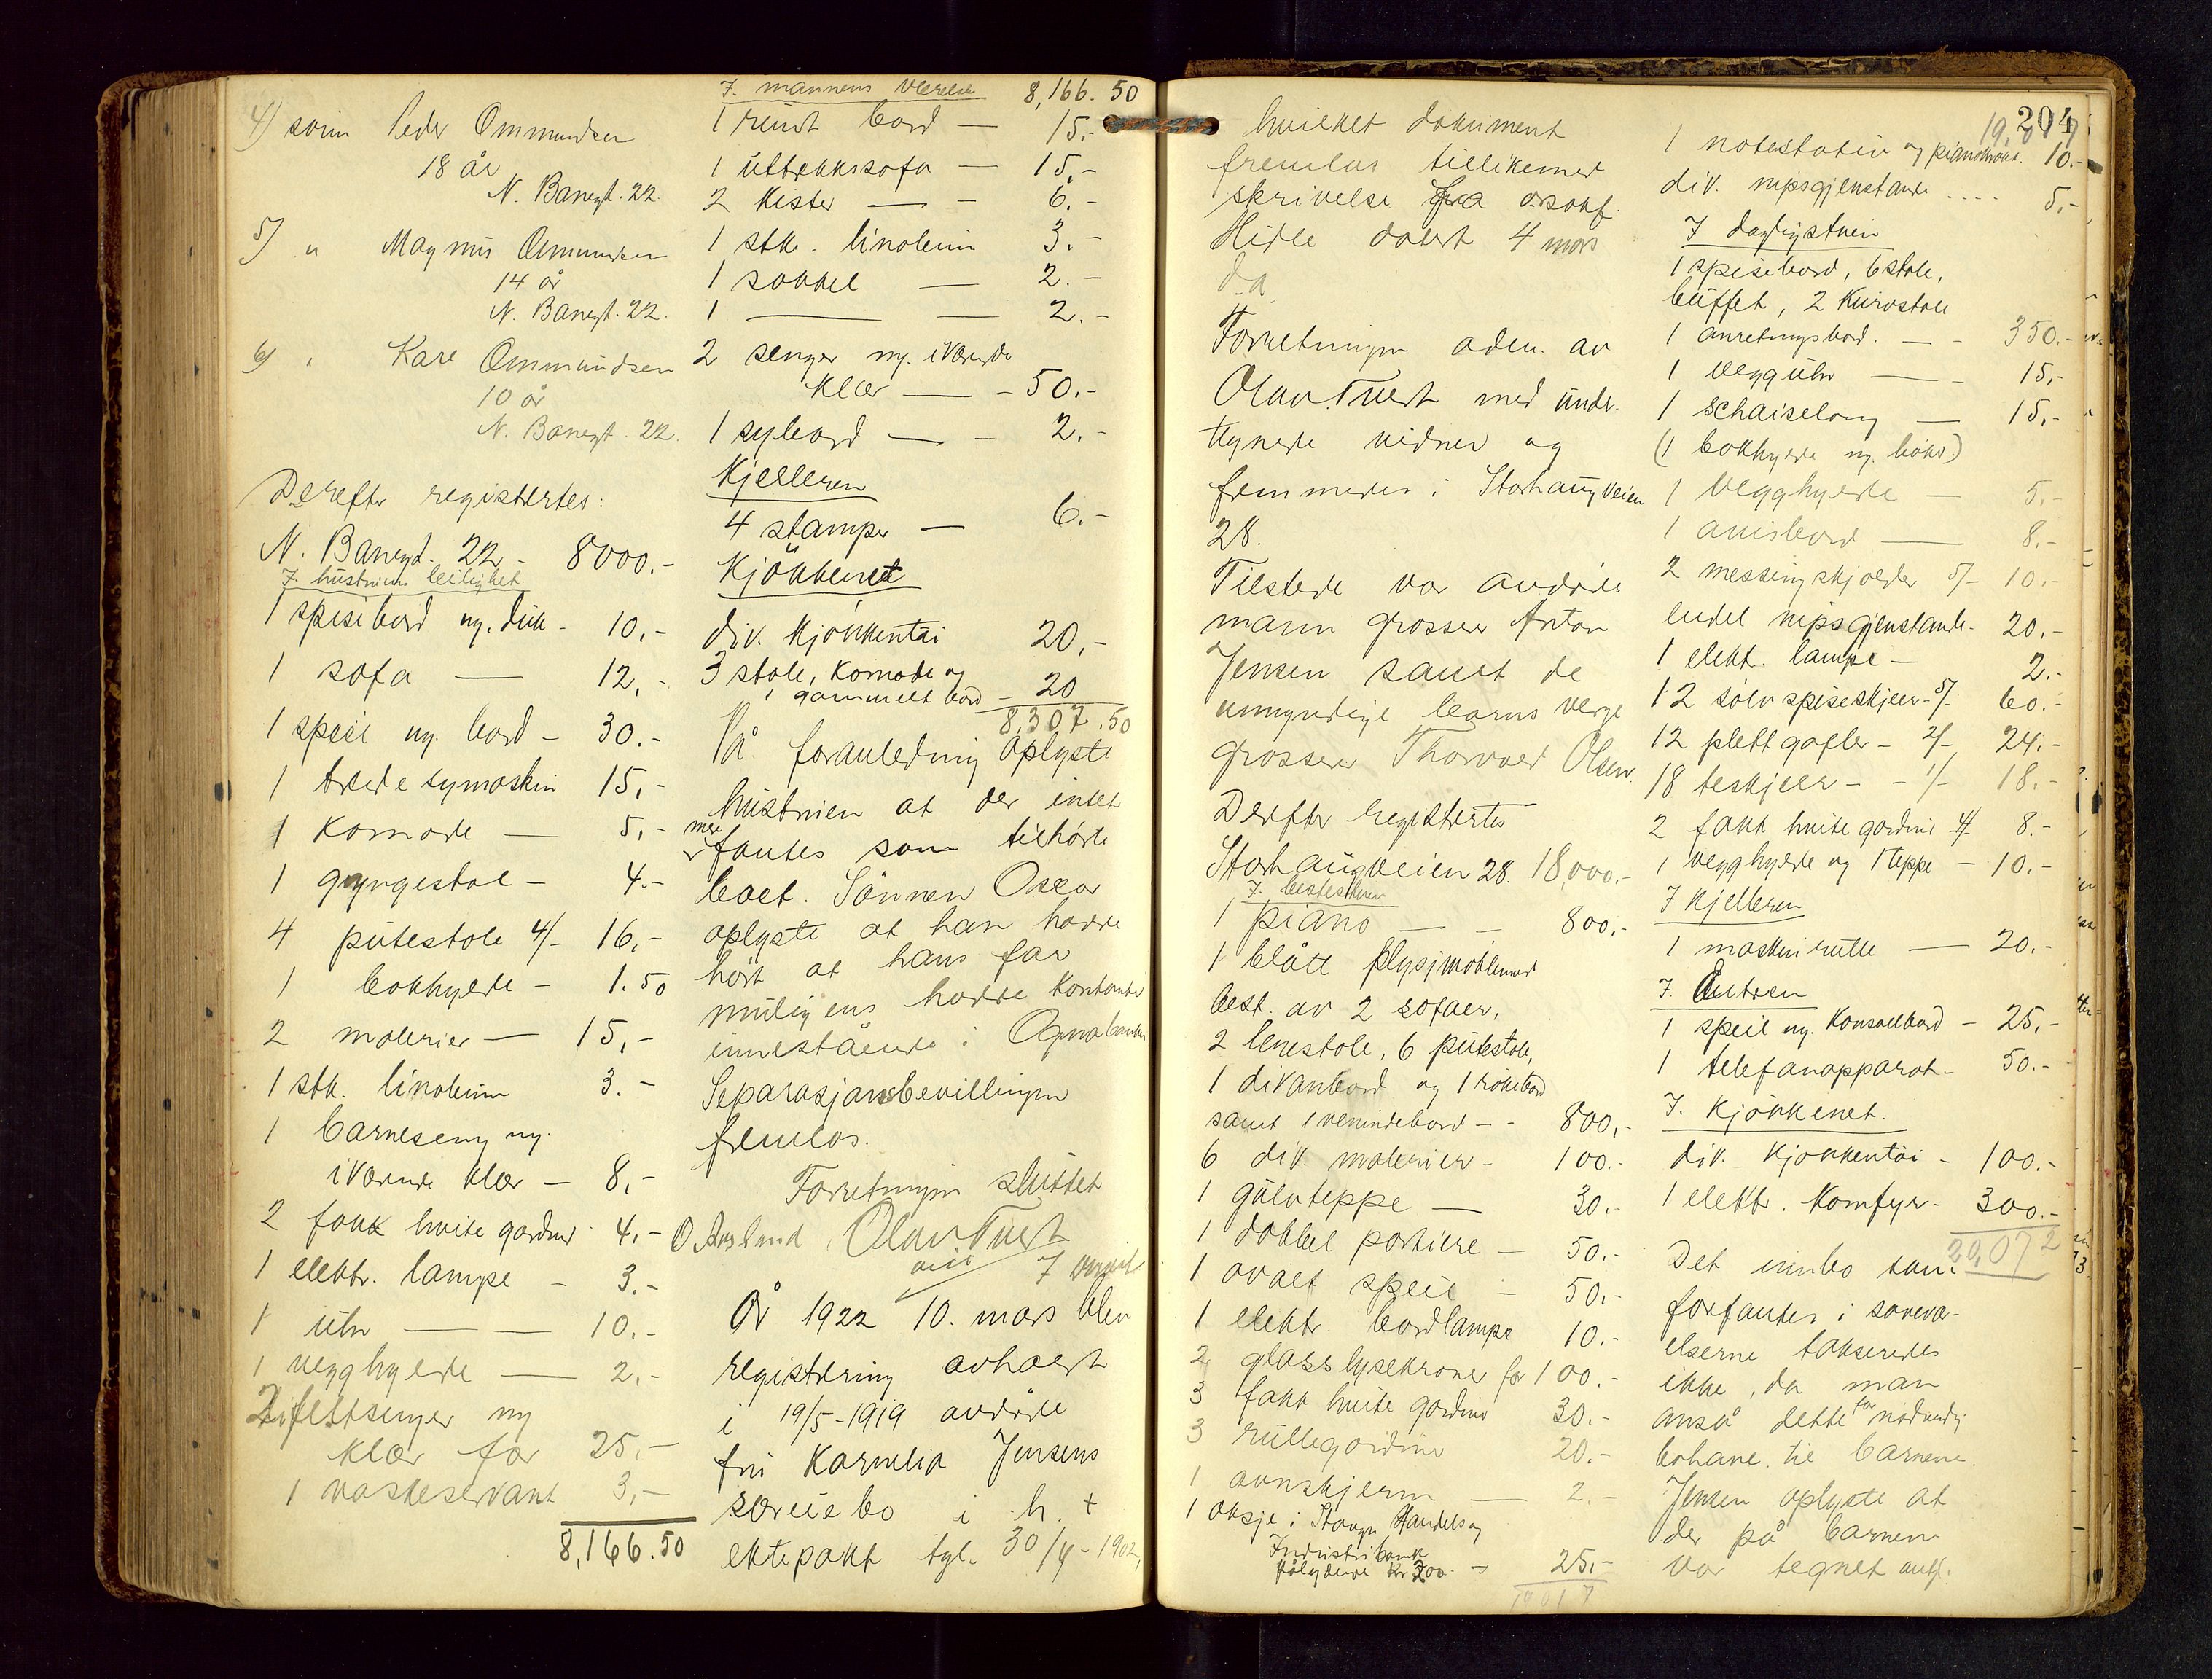 4) sønn Peder Ommundsen
18 år
N. Banegt. 22.
5) " Magnus Ommundsen
14 år
N. Banegt. 22.
6) " Kare Ommundsen
10 år
N. Banegt. 22.
Derefter registertes:
N. Banegt. 22 - 8000.-
I hustruens leilighet
1 spisebord og duk - 10.-
1 sofa — 12.-
1 speil og bord - 30.-
1 træde symaskin 15.-
1 Komode — 5.-
1 gyngestol - 4.-
4 putestole 4/- 16.-
1 bokhylde - 1.50
2 malerier — 15.-
1 stk. linoleum 3.-
1 barneseng og
iværende klær — 8.-
2 fakk hvite gardiner 4.-
1 elektr. lampe - 3.-
1 uhr — — 10.-
1 vegghylde — 2.-
2 feltsenger og
klær for 25.-
1 vaskeservant 3.-
8,166.50
I. mannens værelse 8,166.50
1 rundt bord — 15.-
1 uttrekksofa — 15.-
2 Kister — - 6.-
1 stk. linoleum 3.-
1 sokkel — 2.-
1 —— — 2.-
2 senger og iværende
klær — - 50.-
1 sybord — - 2.-
Kjelleren
4 stamper — 6.-
Kjökkenet
div. kjökkentöi 20.-
3 stole, komode og
1 gammelt bord - 20
8,307.50
På foranledning oplyste
hustruen at der intet
mere
fantes som tilhörte
boet. Sönnen Oscar
oplyste at han hadde
hört at hans far
muligens hadde kontanter
innestående i Ognabanken
Separasjonsbevillingen
fremlas.
Forretningen sluttet
O Aarlund Olav Tveit
År 1922 10. mars blev
registrering avholdt
i 19/5-1919 avdöde
fru Karnelia Jensens
særeiebo i h. t
ektepakt tgl. 30/4-1902,
204
hvilket dokument
fremlas tillikemed
skrivelse fra o.r.sakf.
Hidle datert 4 mars
d.a.
Forretningen adm. av
Olav Tveit med under-
tegnede vidner og
fremmedes i Storhaugveien
28.
Tilstede var avdödes
mann grosserer Anton
Jensen samt de
umyndige barns verge
grosserer Thorvald Olsen.
Derefter registrertes
Storhaugveien 28. 18,000.-
I. bestestuen
1 piano — - 800.-
1 blått plysjmöblement
best. av 2 sofaer,
2 lenestole, 6 putestole,
1 divanbord og 1 rökebord
samt 1 venindebord - - 800.-
6 div. malerier - 100.-
1 gulvteppe — 30.-
1 dobbel portiere - 50.-
1 ovalt speil - 50.-
1 elektr. bordlampe 10.-
2 glasslysekroner for 100.-
3 fakk hvite gardiner 30.-
3 rullegardiner 20.-
1 ovnskjerm — 2.-
1 aksje i Stavgr. Handels og
Industribank
pålydende kr 200.- - 25.-
1 notestativ og pianokrakk 10.-
div. nipsgjenstande .... 5.-
I dagligstuen
1 spisebord, 6 stole,
buffet, 2 kurvstole
1 anretningsbord. — - 350.-
1 vegguhr — - 15.-
1 schaiselong — 15.-
(1 bokhylde og bøker)
1 vegghylde — 5.-
1 avisbord — 8.-
2 messingskjolder 5/- 10.-
endel nipsgjenstande - 20.-
1 elekt. lampe — 2.-
12 sölv spiseskjeer - 5/- 60.-
12 plett gafler - 2/- 24.-
18 teskjeer - - 1/- 18.-
2 fakk hvite gardiner 4/- 8.-
1 vegghylde og 1 teppe - 10.-
I kjelleren
1 maskinrulle — 20.-
I. Entreen
1 speil og konsollbord - 25.-
1 telefonapparat - 50.-
I. Kjökkenet.
div. kjökkentöi - 100.-
1 elektr. Komfyr - 300.-
20,072
Det innbo som
forfantes i soveværelserne takseredes
ikke, da man
anså dette for nödvendig
bohave til barnene.
Jensen oplyste at
der på barnene
var tegnet